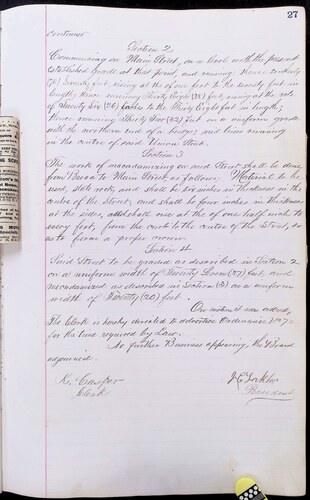 27
continued
Section 2
Commencing on Main Street, on a level with the present
established grade at that point, and running thence
feet, rising at the of one foot to the twenty feet in
length; thence running Thirty Eight (38) feet, rising at the rate
of Twenty Six (26) inches to the Thirty Eight feet in length;
thence running Thirty Two (32) feet on a uniform grade
with the northern end of a bridge, and line running
in the centre of said Union Street.
Section 3
The work of macadamizing on said Street shall be done
from to Main Street as follows; Material to be
used, slate rock, and shall be six inches in thickness in the
centre of the Street, and shall be four inches in thickness
at the sides, and shall rise at the of one half inch to
every foot, from the curb to the centre of the Street, so
as to form a proper crown.
Section 4
Said Street to be graded as described in Section 2
on a uniform width of Twenty Seven (27) feet, and
macadamized as described in Section (3) on a uniform
width of Twenty (20) feet.
On motion it was ordered,
The Clerk is hereby directed to advertise Ordinance No 70
for the time required by Law.
No further Business appearing, the Board
adjourned.
K. Casper
Clerk
President